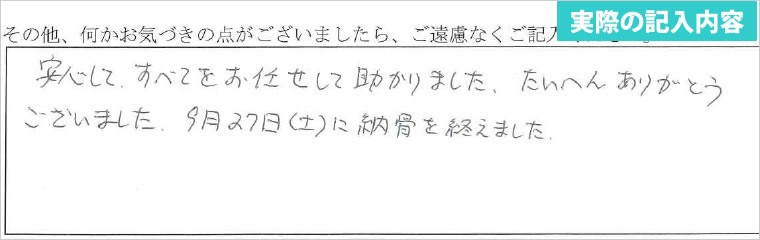 実際の記入内容
その他、何かお気づきの点がございましたら、ご遠慮なくご記入
安心して、すべてをお任せして助かりました、たいへんありがとう
ございました、9月27日(土)に納骨を終えました、